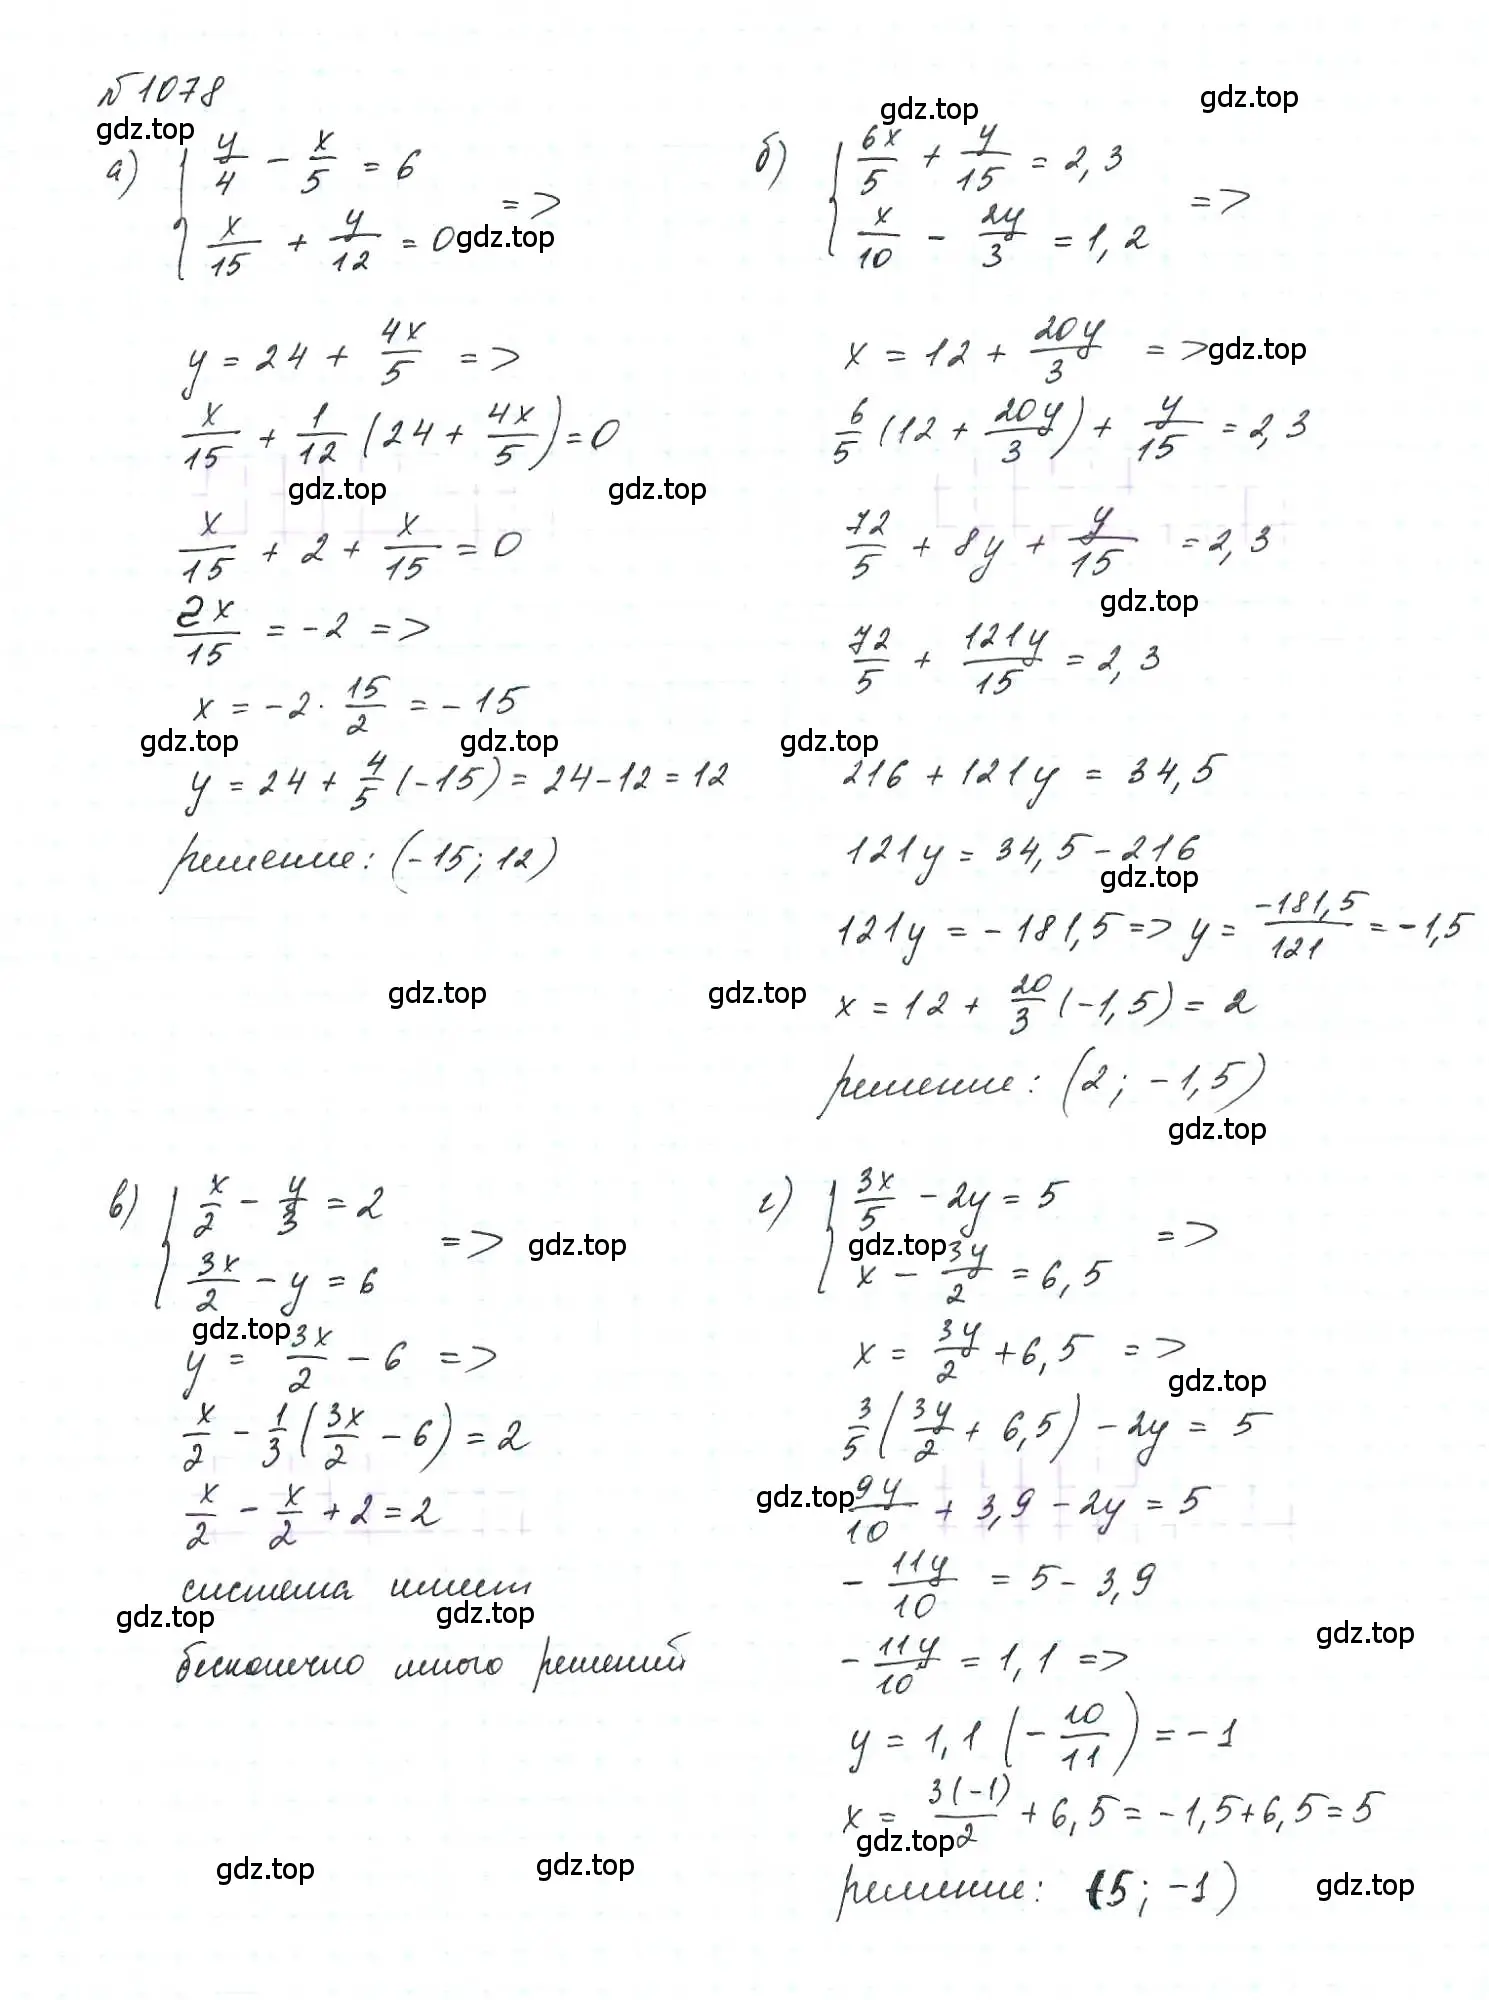 №1078
gdz.top
gdz.top
gdz.top
а) { y/4 - x/5 = 6
x/15 + y/12 = 0 =>
gdz.top
y = 24 + 4x/5 =>
x/15 + 1/12 (24 + 4x/5) = 0
gdz.top
gdz.top
x/15 + 2 + x/15 = 0
2x/15 = -2 =>
x = -2 · 15/2 = -15
gdz.top
gdz.top
y = 24 + 4/5 (-15) = 24 - 12 = 12
решение: (-15; 12)
gdz.top
gdz.top
б) { 6x/5 + y/15 = 2,3
x/10 - 2y/3 = 1,2 =>
x = 12 + 20y/3 =>
gdz.top
6/5 (12 + 20y/3) + y/15 = 2,3
72/5 + 8y + y/15 = 2,3
gdz.top
72/5 + 121y/15 = 2,3
gdz.top
216 + 121y = 34,5
121y = 34,5 - 216
gdz.top
121y = -181,5 => y = -181,5/121 = -1,5
x = 12 + 20/3 (-1,5) = 2
решение: (2; -1,5)
gdz.top
в) { x/2 - y/3 = 2
3x/2 - y = 6 =>
gdz.top
gdz.top
y = 3x/2 - 6 =>
x/2 - 1/3 (3x/2 - 6) = 2
x/2 - x/2 + 2 = 2
система имеет
gdz.top
gdz.top
бесконечно много решений
gdz.top
gdz.top
г) { 3x/5 - 2y = 5
gdz.top
x - 3y/2 = 6,5 =>
x = 3y/2 + 6,5 =>
gdz.top
3/5 (3y/2 + 6,5) - 2y = 5
gdz.top
9y/10 + 3,9 - 2y = 5
- 11y/10 = 5 - 3,9
gdz.top
- 11y/10 = 1,1 =>
y = 1,1 (- 10/11) = -1
x = 3(-1)/2 + 6,5 = -1,5 + 6,5 = 5
gdz.top
решение: (5; -1)
gdz.top